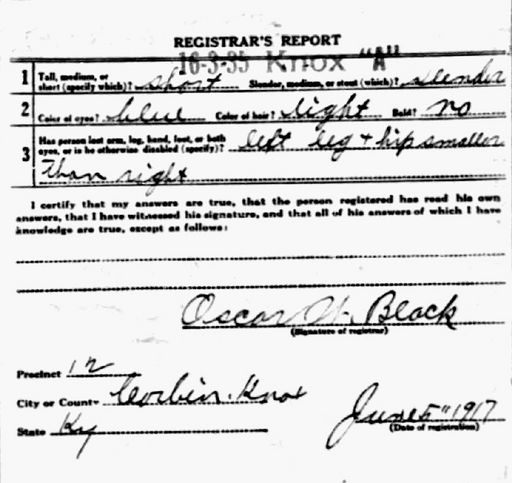 REGISTRAR'S REPORT
16-3-35 KNOX "A"
1 Tall, medium, or short (specify which)? short Slender, medium, or stout (which)? slender
2 Color of eyes? blue Color of hair? light Bald? no
3 Has person lost arm, leg, hand, foot, or both eyes, or is he otherwise disabled (specify)? left leg + hip smaller
than right
I certify that my answers are true, that the person registered has read his own
answers, that I have witnessed his signature, and that all of his answers of which I have
knowledge are true, except as follows:
Oscar W. Black
(Signature of registrar)
Precinct 12
City or County Corbin. Knox
State Ky
June 5" 1917
(Date of registration)